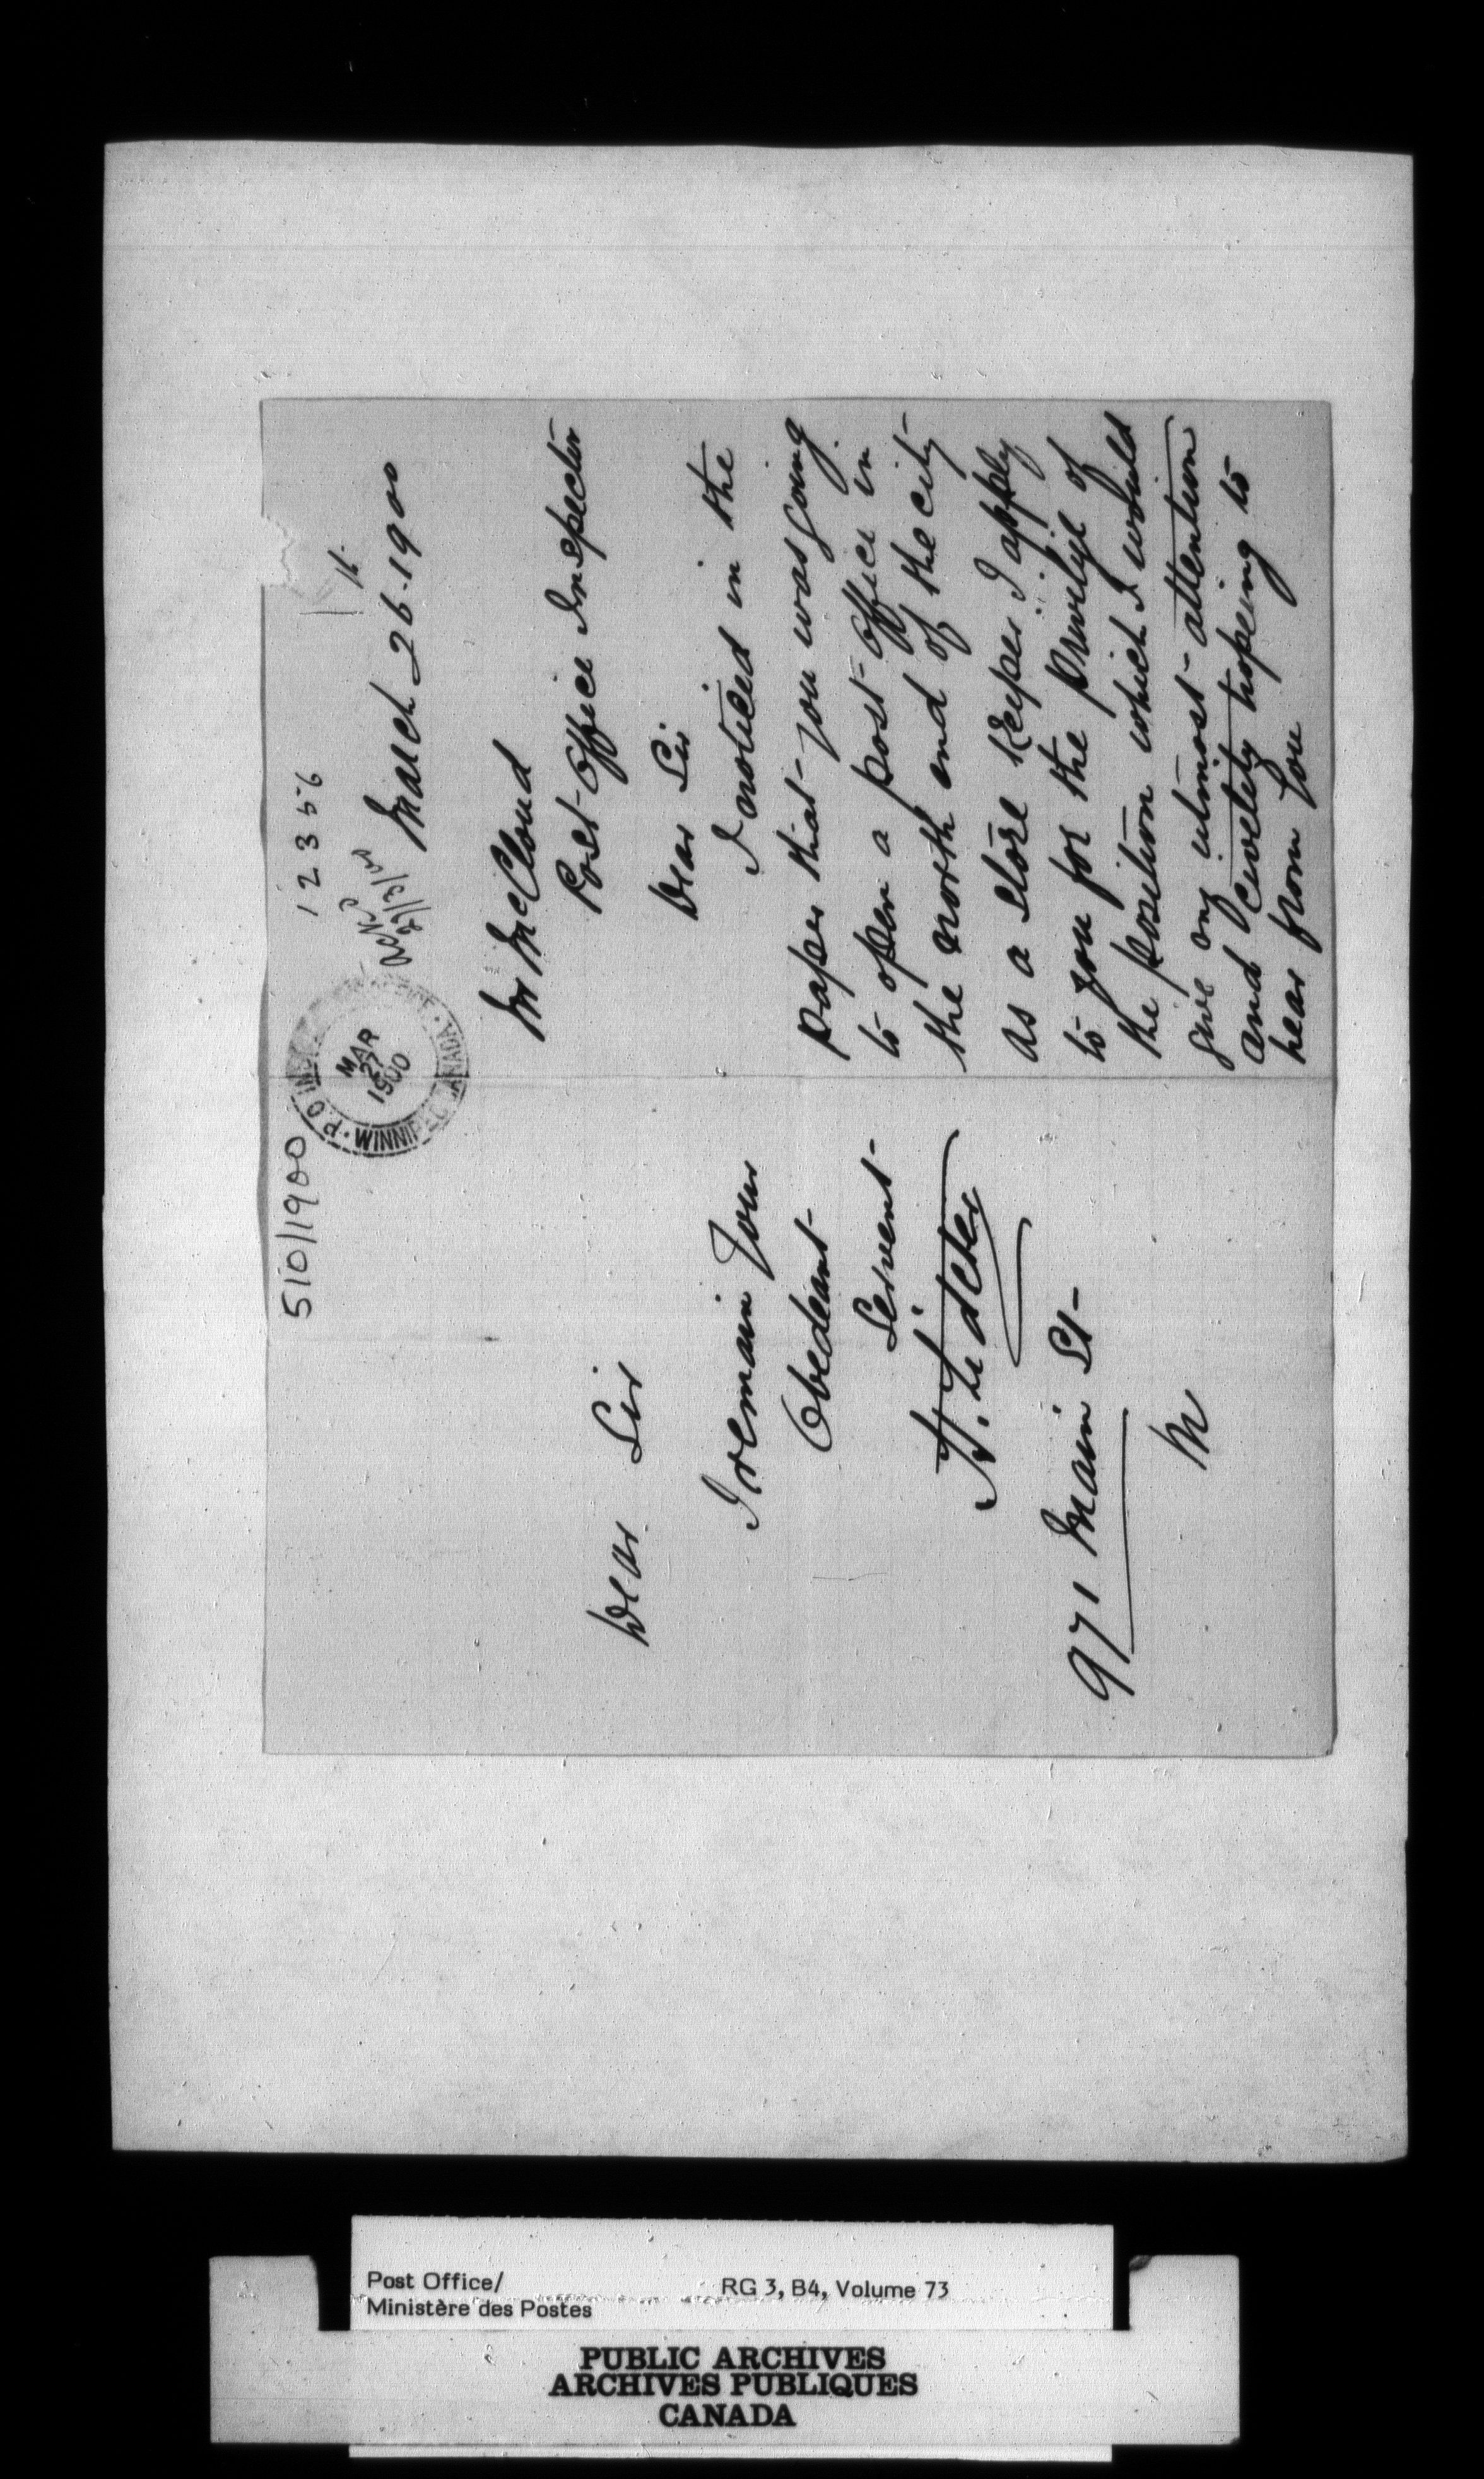 510/1900
12356
P.O INSPECTOR'S OFFICE · WINNIPEG CANADA ·
MAR
27
1900
Ackd
27/3/00
March 26-1900
Mr McCloud
Post Office Inspector
Dear Sir
I noticed in the
paper that you was going
to open a post office in
the north end of the city
as a store keeper I apply
to you for the privelige of
the position which I would
give my utmost attention
and civelity hopeing to
hear from you
Dear Sir
I remain your
Obedeant
Servent
971 Main St
M
Post Office/
Ministère des Postes
RG 3, B4, Volume 73
PUBLIC ARCHIVES
ARCHIVES PUBLIQUES
CANADA